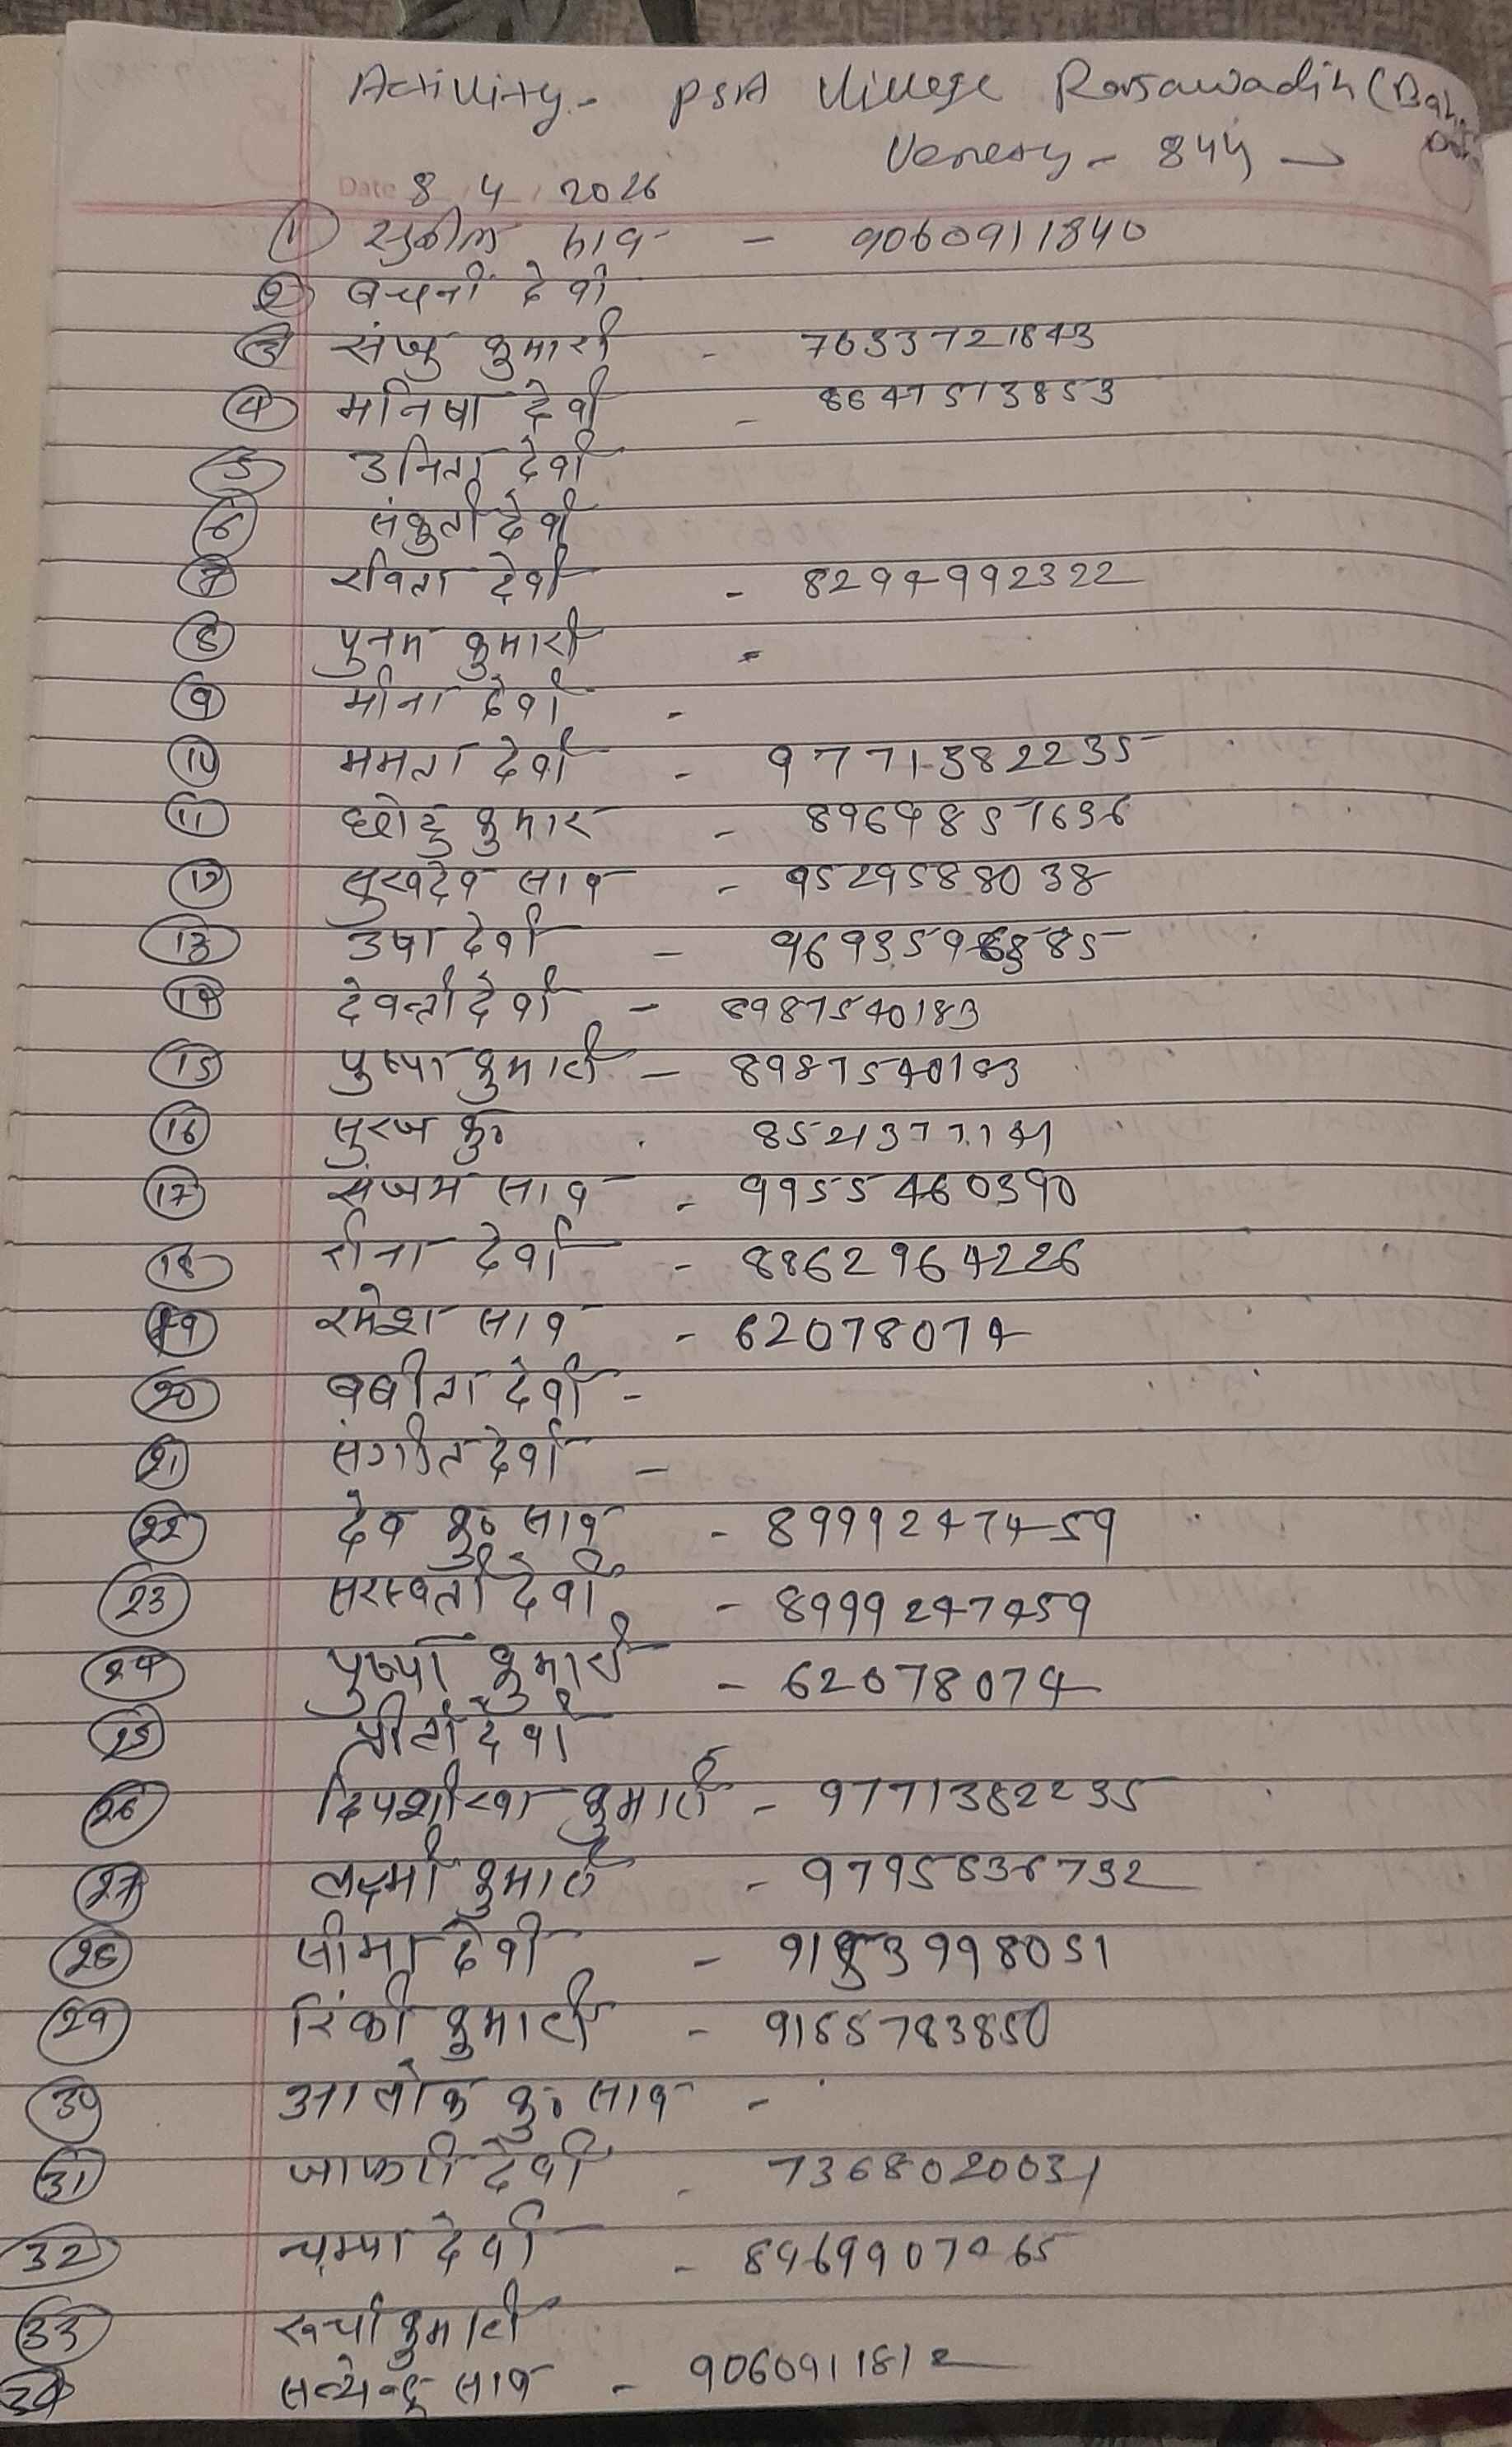 Activity - PSA Village Rasawadih (Bah.
Venesy - 844 →
Date 8 / 4 / 2026
① सुनील साव - 9060911840
② बचनी देवी
③ संजु कुमारी - 7633721843
④ मनिषा देवी - 8647513853
5 उनिता देवी
6 संकुती देवी
⑦ रविता देवी - 8294992322
⑧ पुनम कुमारी -
⑨ मीना देवी -
⑩ ममता देवी - 9771382235
⑪ छोटु कुमार - 8964857636
⑫ सुखदेव साव - 9529588038
⑬ उषा देवी -
⑭ देवन्ती देवी - 8987540183
⑮ पुष्पा कुमारी - 8987540183
⑯ सुरज कु० 8521377141
⑰ संजम साव - 9955460390
⑱ रीना देवी - 8862964226
⑲ रमेश साव - 62078074
⑳ बबीता देवी -
21 संगीत देवी -
22 देव कु० साव - 8999247459
23 सरस्वती देवी - 8999247459
24 पुष्पा कुमारी - 62078074
25 देवी
26 दिपशीखा कुमारी - 9771382235
27 लक्ष्मी कुमारी - 9795536732
28 सीमा देवी -
29 रिंकी कुमारी - 9155783850
30 आलोक कु० साव -
31 जाफरी देवी - 7368020031
32 चम्पा देवी - 8969907065
33 रूची कुमारी
34 सत्येन्द्र साव - 9060911812